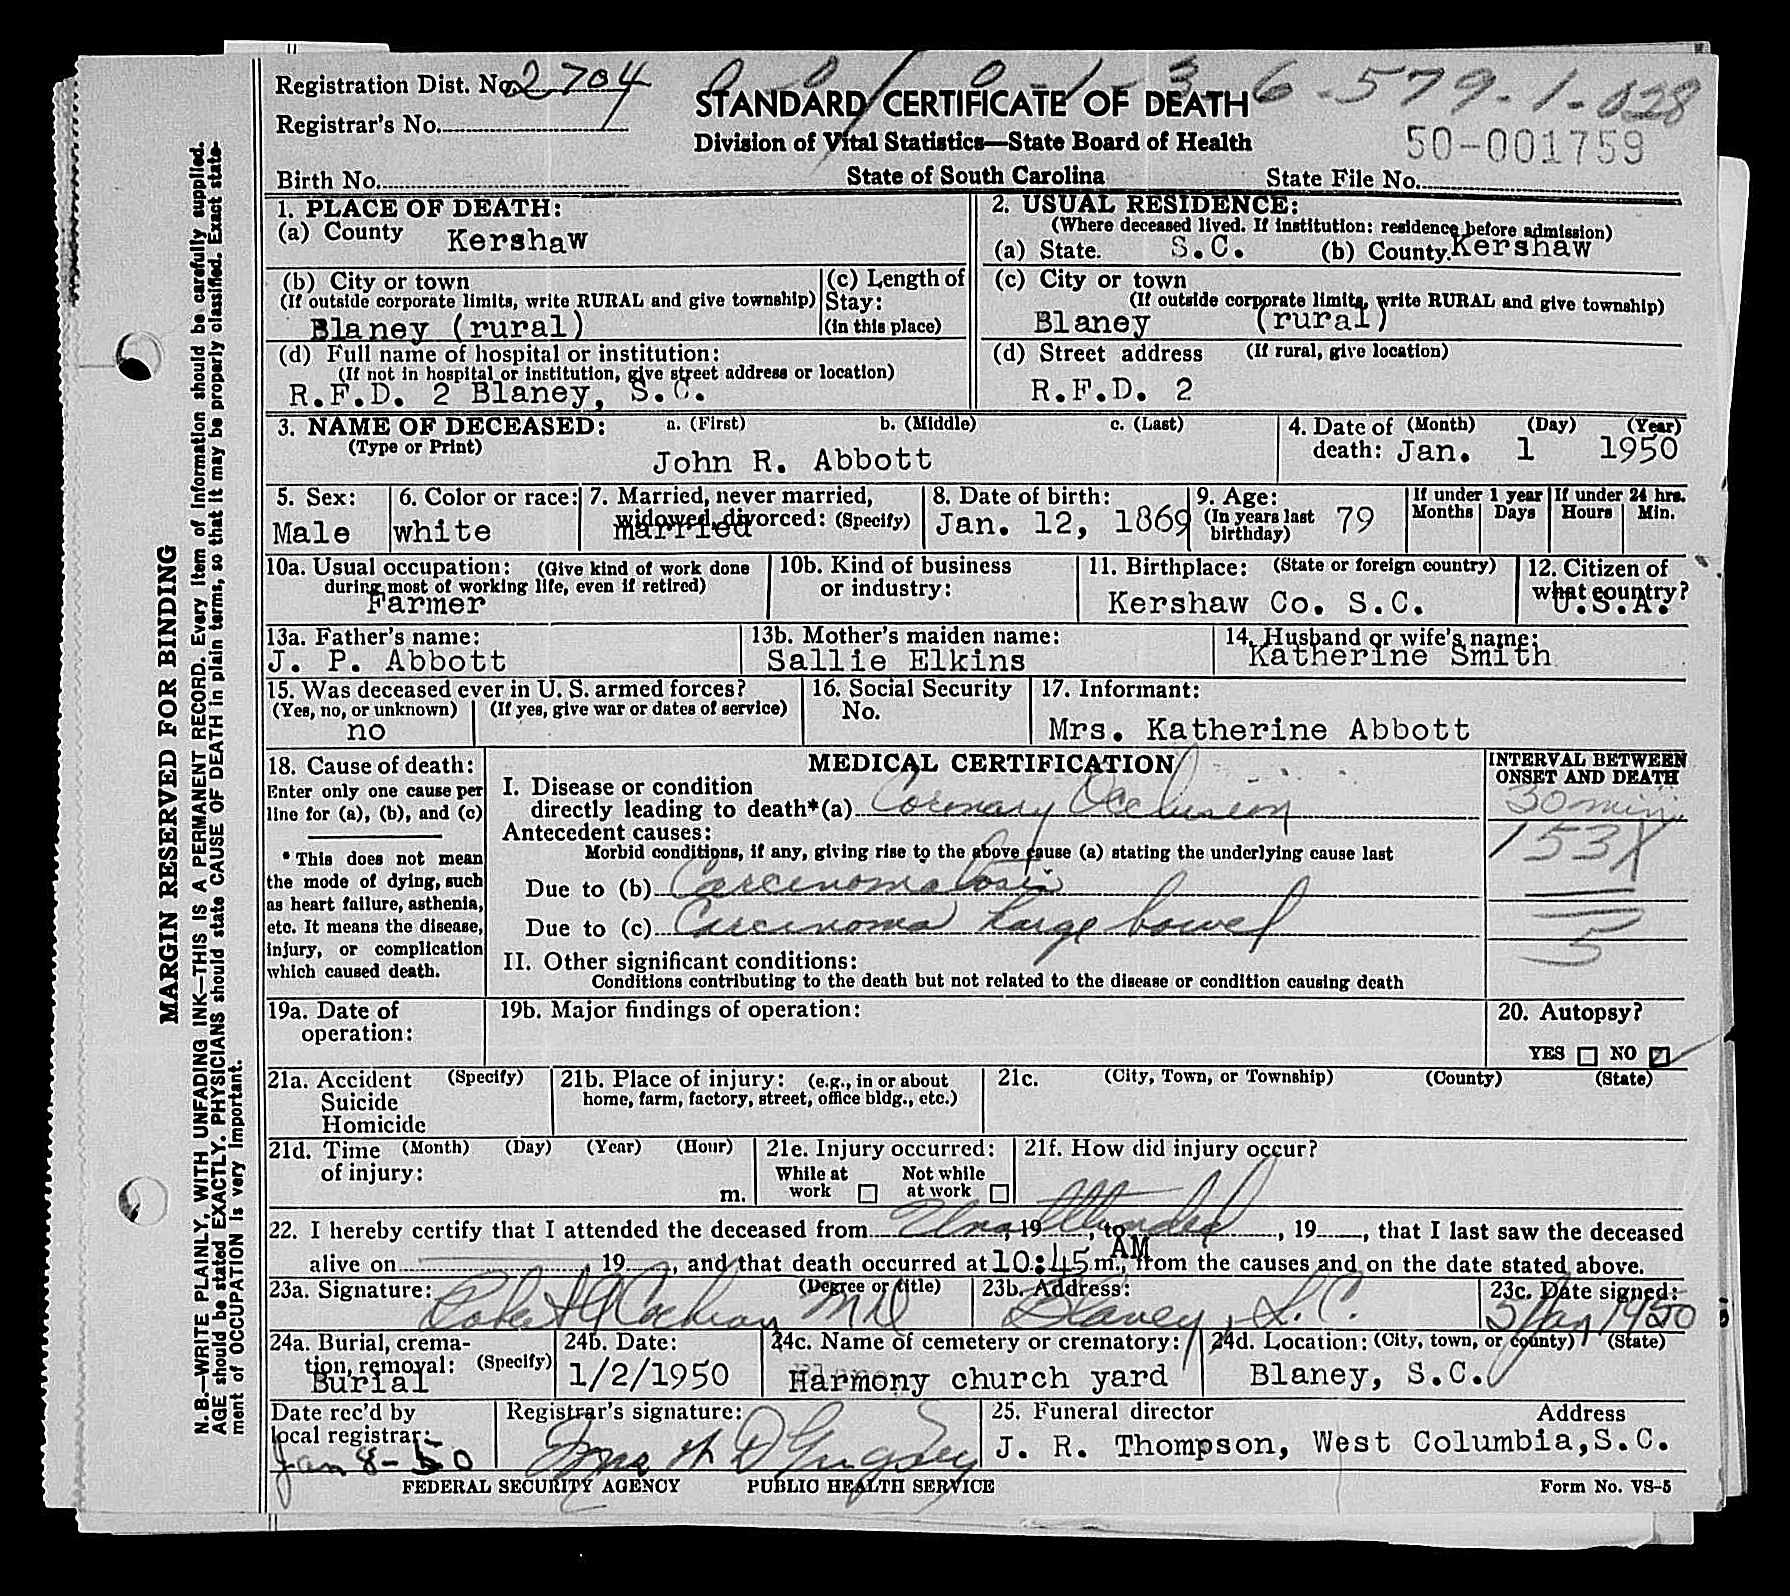 Registration Dist. No. 2704
0 0 1 0 - 1 - 3 6 - 579 - 1 - 028
STANDARD CERTIFICATE OF DEATH
Registrar's No.
Division of Vital Statistics—State Board of Health
50-001759
Birth No.
State of South Carolina
State File No.
1. PLACE OF DEATH:
(a) County Kershaw
2. USUAL RESIDENCE:
(Where deceased lived. If institution: residence before admission)
(a) State. S.C. (b) County. Kershaw
(b) City or town
(If outside corporate limits, write RURAL and give township)
Blaney (rural)
(c) Length of
Stay:
(in this place)
(c) City or town
(If outside corporate limits, write RURAL and give township)
Blaney (rural)
(d) Full name of hospital or institution:
(If not in hospital or institution, give street address or location)
R.F.D. 2 Blaney, S.C.
(d) Street address (If rural, give location)
R.F.D. 2
3. NAME OF DECEASED: a. (First) b. (Middle) c. (Last)
(Type or Print)
John R. Abbott
4. Date of (Month) (Day) (Year)
death: Jan. 1 1950
5. Sex:
Male
6. Color or race:
white
7. Married, never married,
widowed, divorced: (Specify)
married
8. Date of birth:
Jan. 12, 1869
9. Age:
(In years last
birthday)
79
If under 1 year
Months Days
If under 24 hrs.
Hours Min.
10a. Usual occupation: (Give kind of work done
during most of working life, even if retired)
Farmer
10b. Kind of business
or industry:
11. Birthplace: (State or foreign country)
Kershaw Co. S.C.
12. Citizen of
what country?
U.S.A.
13a. Father's name:
J. P. Abbott
13b. Mother's maiden name:
Sallie Elkins
14. Husband or wife's name:
Katherine Smith
15. Was deceased ever in U. S. armed forces?
(Yes, no, or unknown) (If yes, give war or dates of service)
no
16. Social Security
No.
17. Informant:
Mrs. Katherine Abbott
18. Cause of death:
Enter only one cause per
line for (a), (b), and (c)
* This does not mean
the mode of dying, such
as heart failure, asthenia,
etc. It means the disease,
injury, or complication
which caused death.
MEDICAL CERTIFICATION
I. Disease or condition
directly leading to death*(a) Coronary Occlusion
Antecedent causes:
Morbid conditions, if any, giving rise to the above cause (a) stating the underlying cause last
Due to (b) Carcinomatosis
Due to (c) Carcinoma large bowel
II. Other significant conditions:
Conditions contributing to the death but not related to the disease or condition causing death
INTERVAL BETWEEN
ONSET AND DEATH
30 min.
153X
5
19a. Date of
operation:
19b. Major findings of operation:
20. Autopsy?
YES NO
21a. Accident (Specify)
Suicide
Homicide
21b. Place of injury: (e.g., in or about
home, farm, factory, street, office bldg., etc.)
21c. (City, Town, or Township) (County) (State)
21d. Time (Month) (Day) (Year) (Hour)
of injury:
m.
21e. Injury occurred:
While at
work
Not while
at work
21f. How did injury occur?
22. I hereby certify that I attended the deceased from Unattended, 19, to, 19, that I last saw the deceased
alive on, 19, and that death occurred at 10:45 AM m., from the causes and on the date stated above.
23a. Signature: (Degree or title)
Robert A Cochran MD
23b. Address:
Blaney, S.C.
23c. Date signed:
5 Jan 1950
24a. Burial, crema-
tion, removal: (Specify)
Burial
24b. Date:
1/2/1950
24c. Name of cemetery or crematory:
Harmony church yard
24d. Location: (City, town, or county) (State)
Blaney, S.C.
Date rec'd by
local registrar:
Jan 8-50
Registrar's signature:
Mrs H D
25. Funeral director Address
J. R. Thompson, West Columbia, S.C.
FEDERAL SECURITY AGENCY PUBLIC HEALTH SERVICE
Form No. VS-5
MARGIN RESERVED FOR BINDING
N. B.—WRITE PLAINLY, WITH UNFADING INK—THIS IS A PERMANENT RECORD. Every item of information should be carefully supplied.
AGE should be stated EXACTLY. PHYSICIANS should state CAUSE OF DEATH in plain terms, so that it may be properly classified. Exact state-
ment of OCCUPATION is very important.